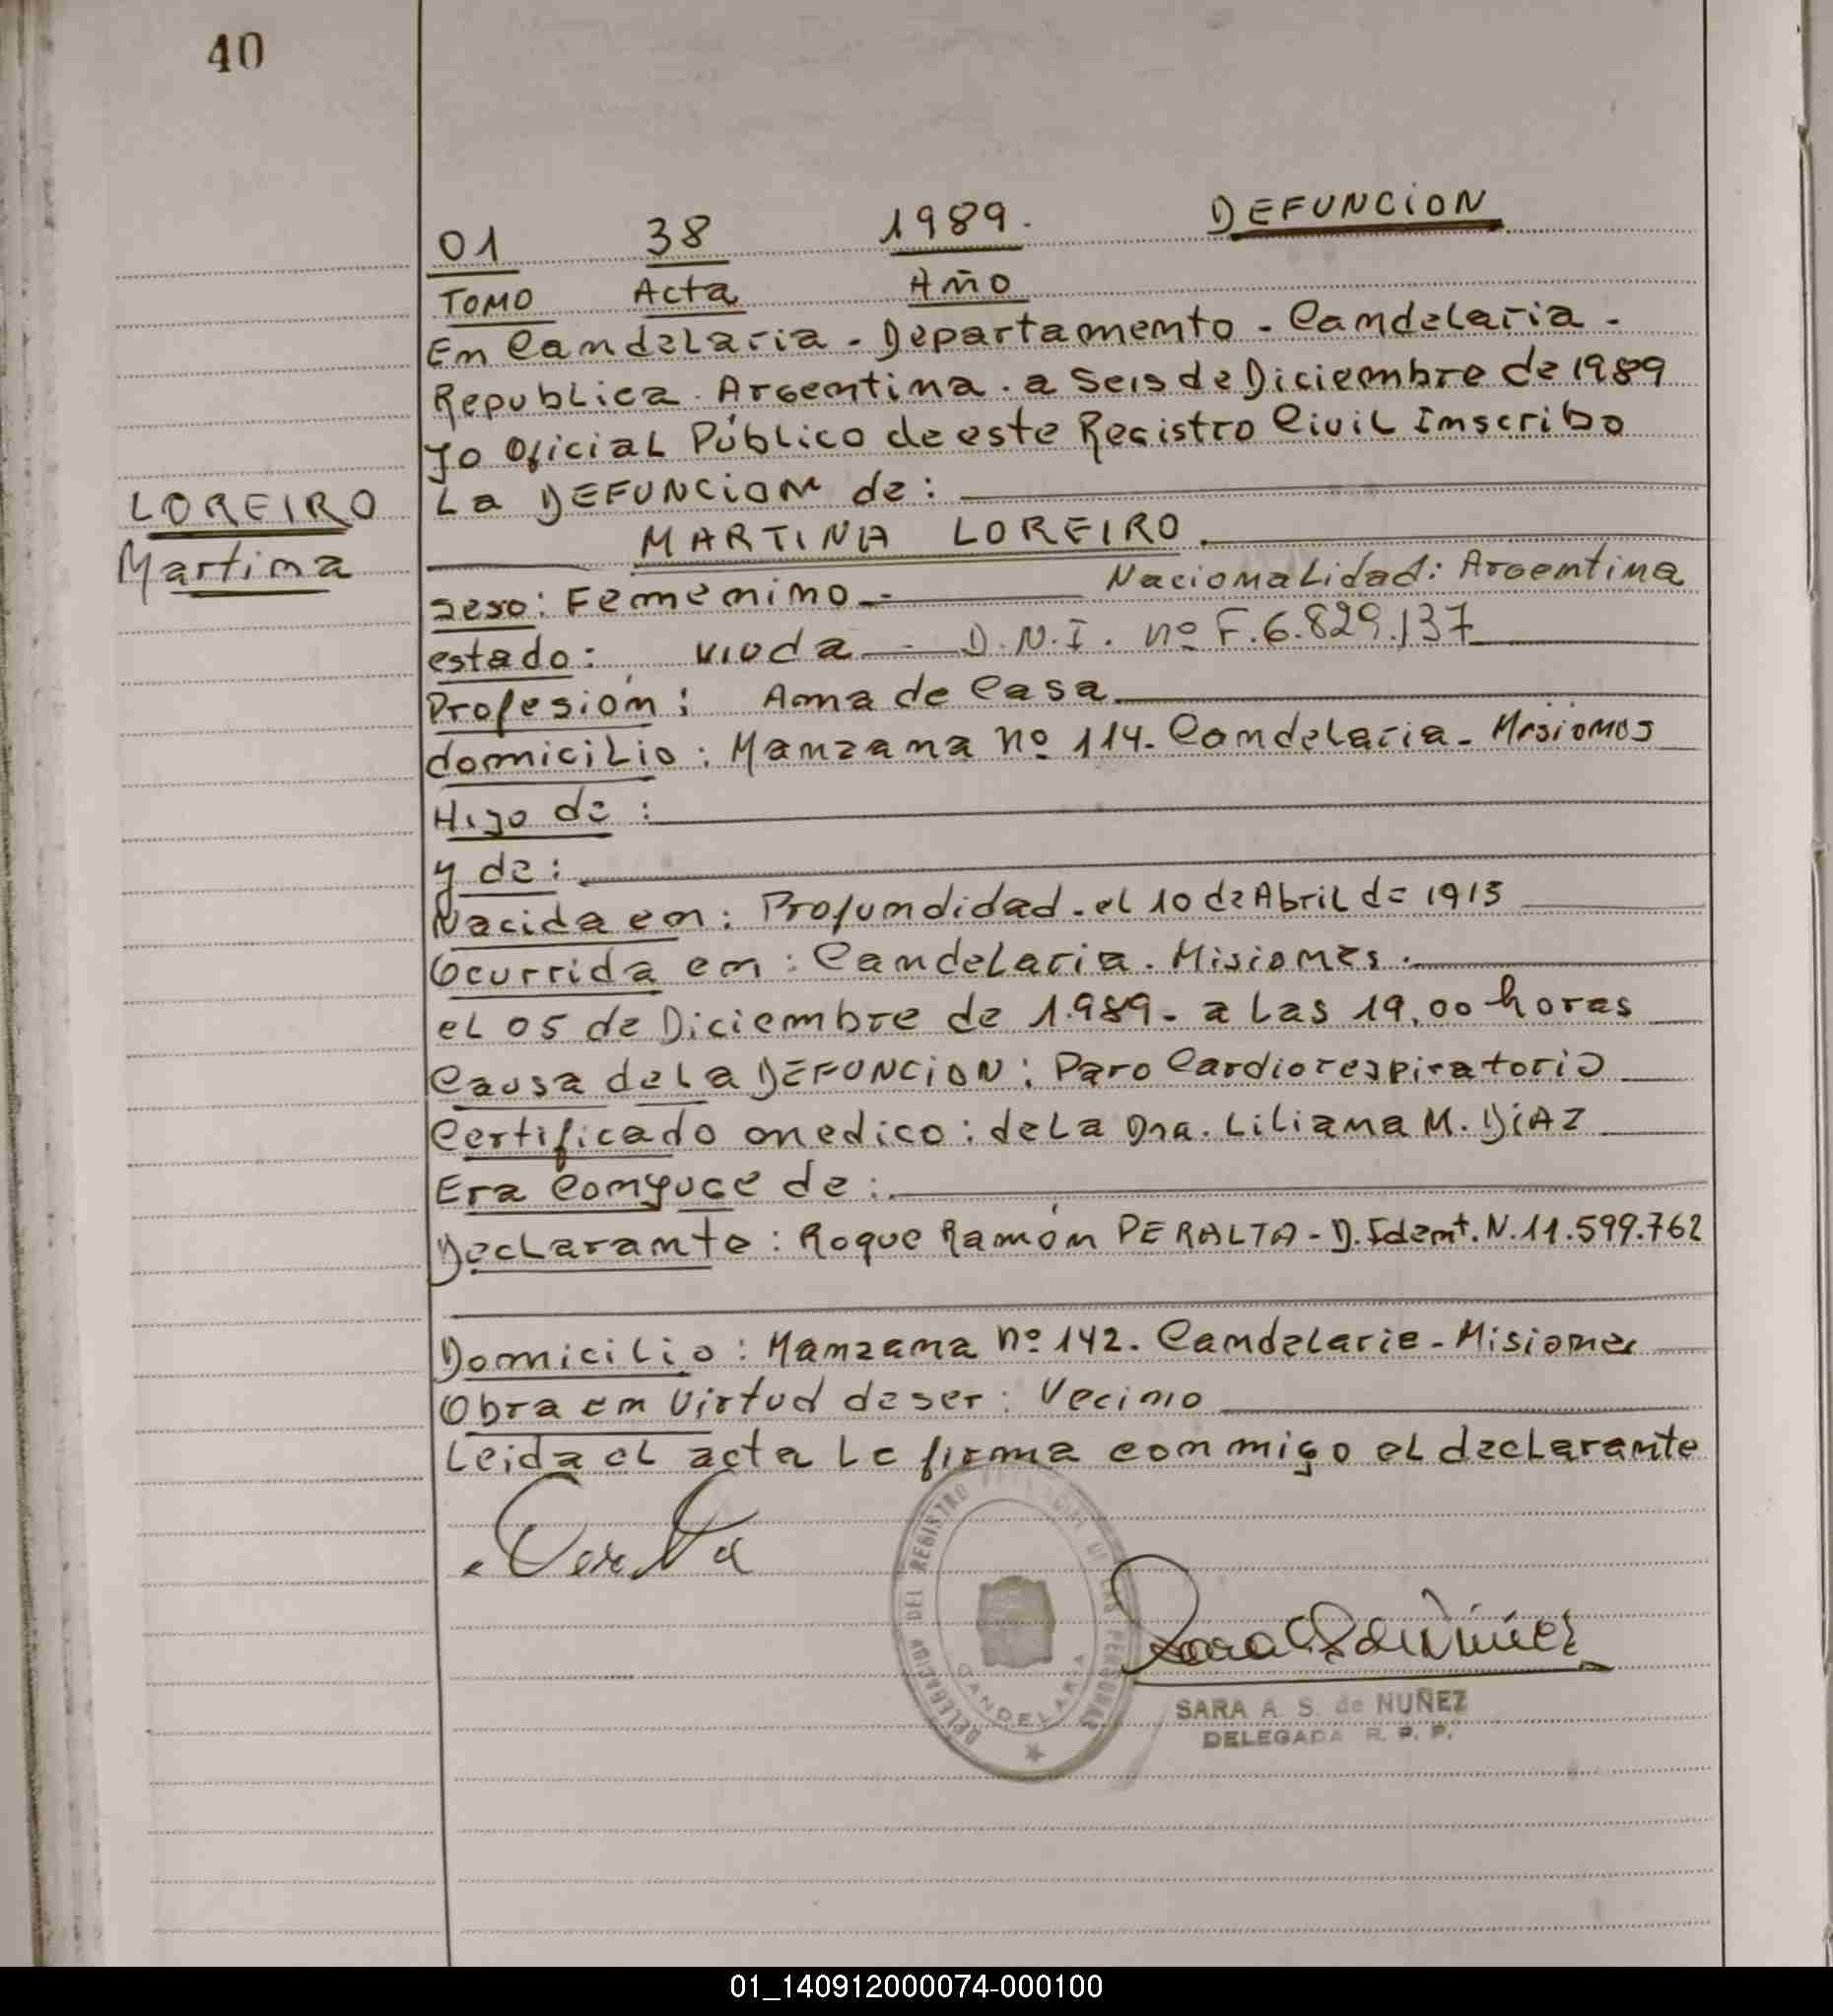 40
01 38 1989. DEFUNCION
TOMO Acta Año
En Candelaria - Departamento - Candelaria -
Republica Argentina . a Seis de Diciembre de 1989
Yo Oficial Público de este Registro Civil Inscribo
La DEFUNCION de :
LOREIRO
Martina
MARTINA LOREIRO .
sexo : Femenino - Nacionalidad : Argentina
estado : viuda - D.N.I. nº F.6.829.137
Profesión : Ama de Casa
domicilio : Manzana nº 114. Candelaria - Misiones
Hijo de :
y de :
Nacida en : Profundidad - el 10 de Abril de 1913
Ocurrida en : Candelaria . Misiones .
el 05 de Diciembre de 1.989 - a las 19,00 horas
Causa de la DEFUNCION : Paro Cardiorespiratorio
Certificado medico : de la Dra. Liliana M. DiAZ
Era Conyuge de :
Declarante : Roque Ramón PERALTA - D. Ident. N. 11.599.762
Domicilio : Manzana nº 142. Candelaria - Misiones
Obra en Virtud de ser : Vecino
Leida el acta Le firma conmigo el declarante
DELEGACION DEL REGISTRO PROVINCIAL DE LAS PERSONAS
CANDELARIA
SARA A. S. de NUÑEZ
DELEGADA R. P. P.
01_140912000074-000100